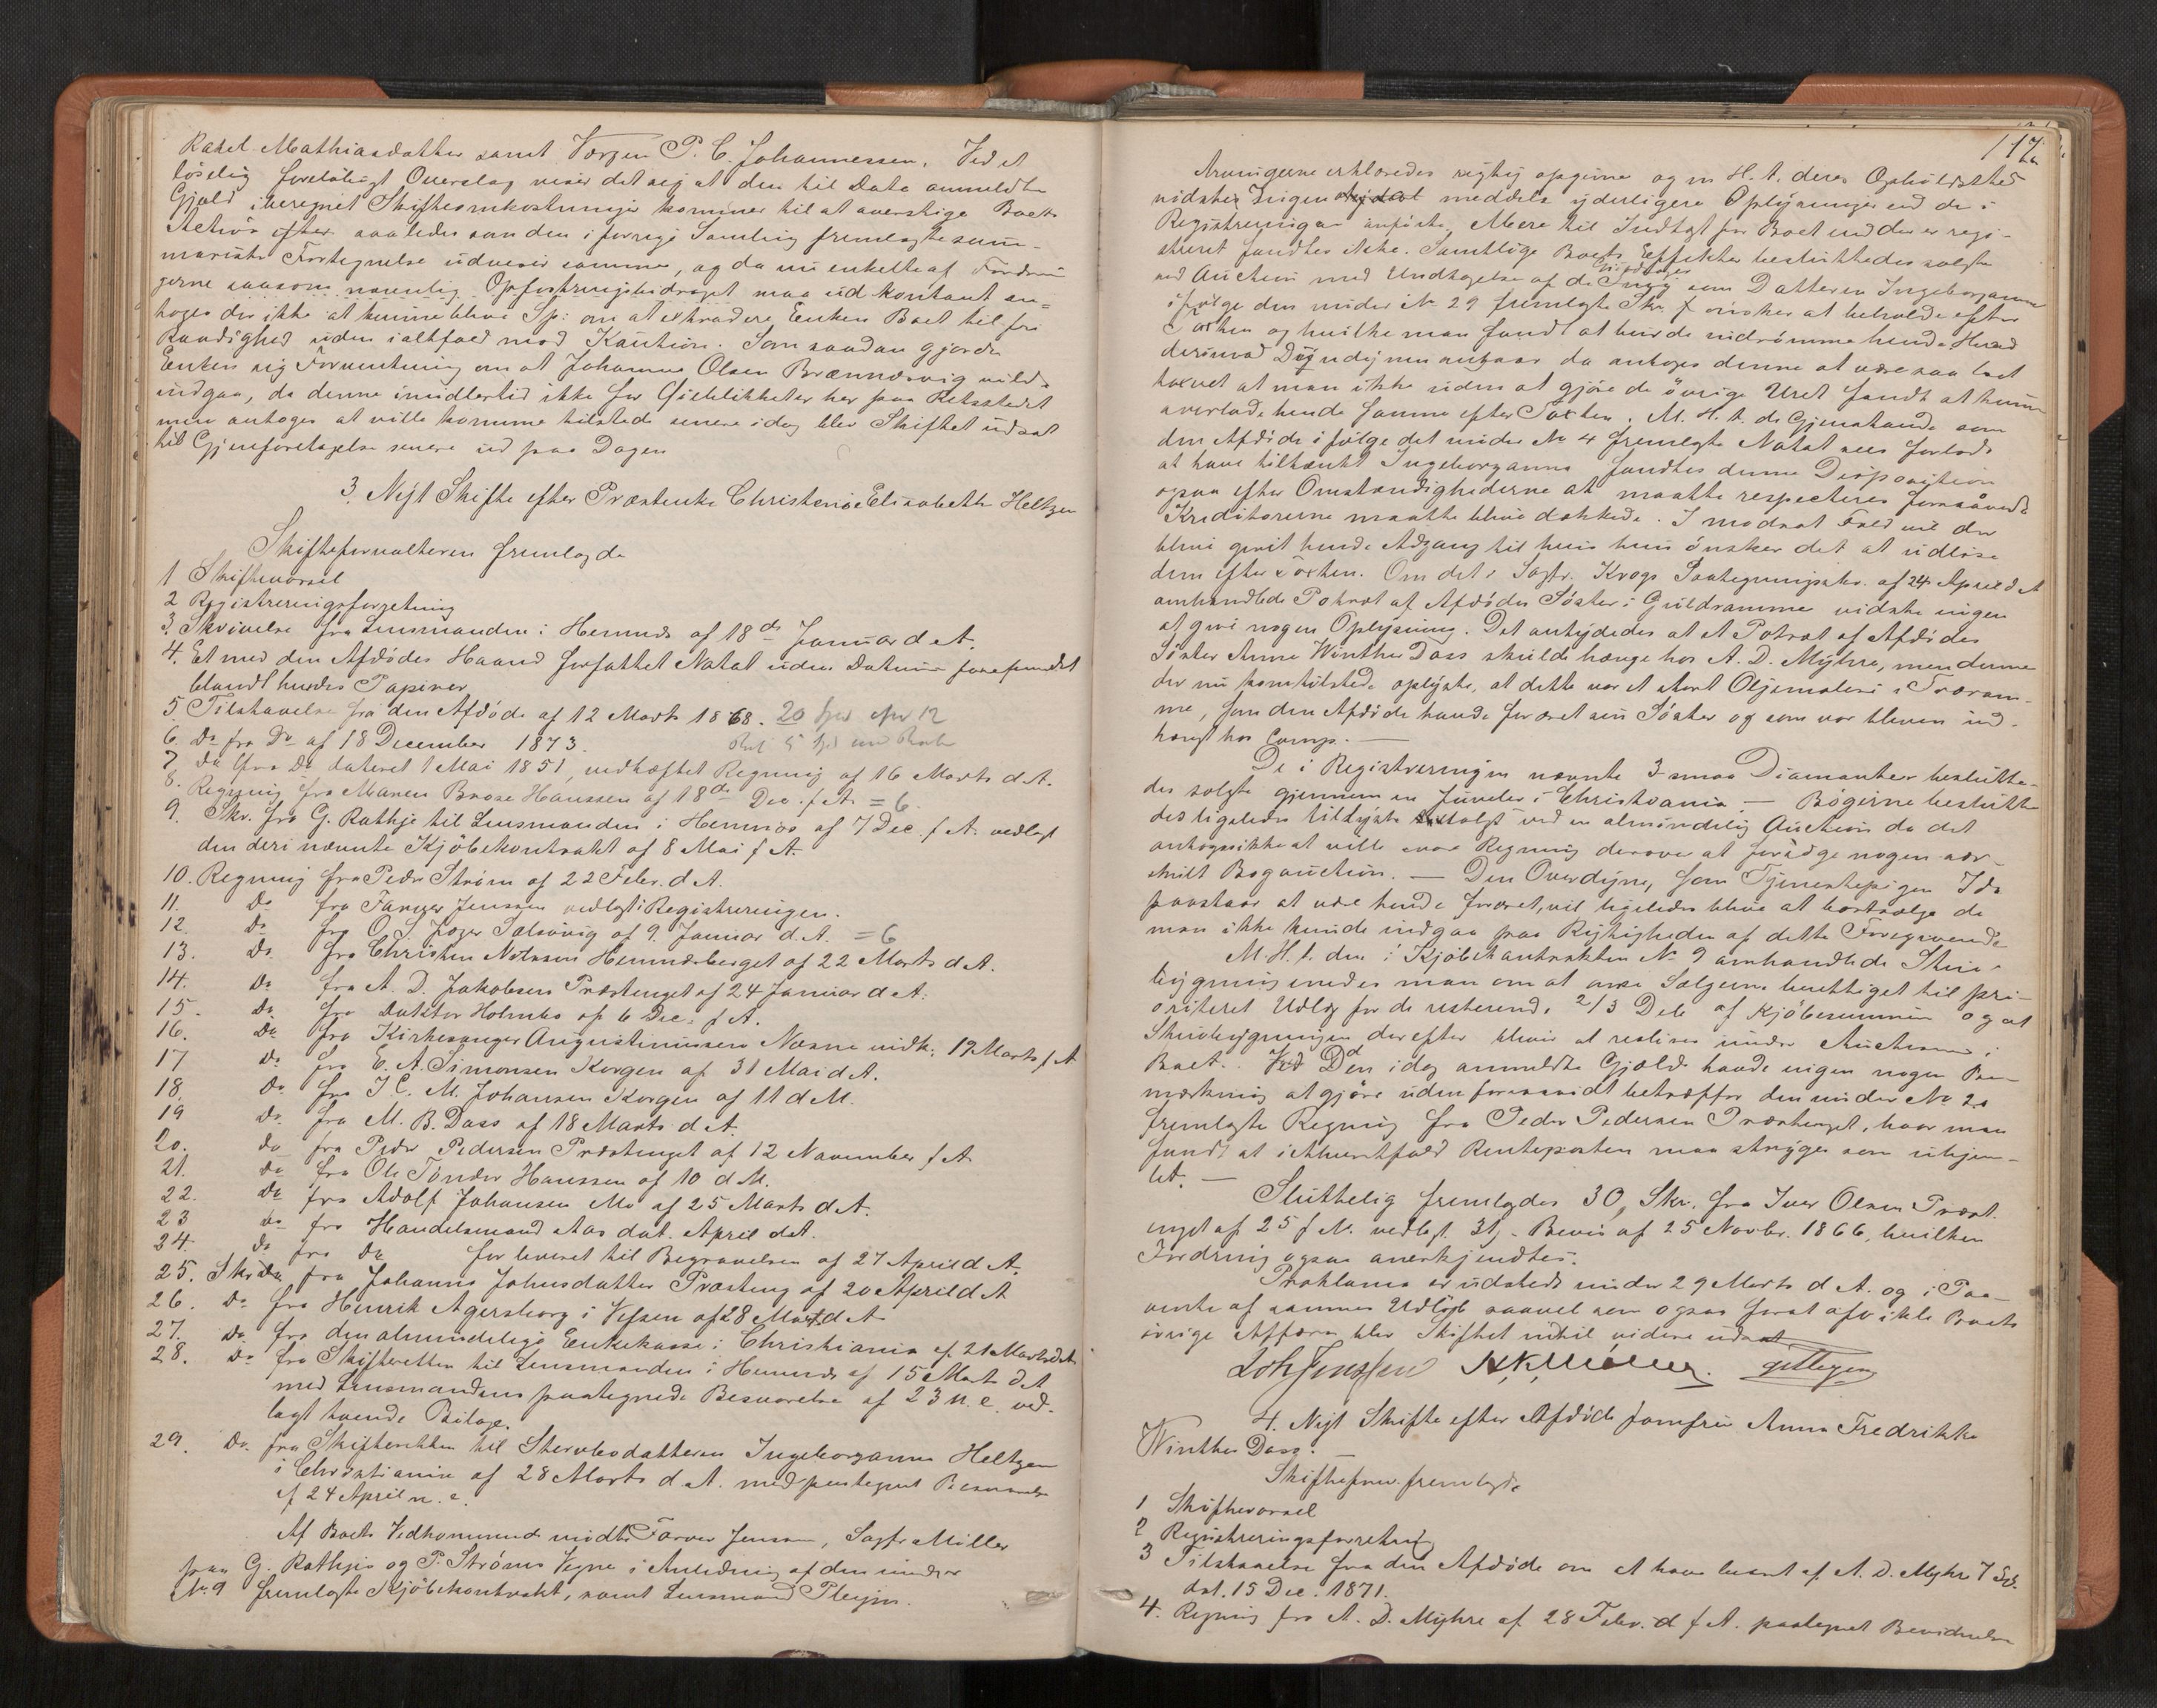 Rakel Mathiasdatter samt Værgen P. C. Johannessen. Ved et
løselig foreløbigt Overslag viser det sig at den til Dato anmeldte
Gjæld iberegnet Skifteomkostninger kommer til at overstige Boets
Activa efter saaledes som den i forrige Samling fremlagte sum-
mariske Fortegnelse udviser samme, og da nu enkelte af Fordrin
gerne saasom navnlig Opfostringsbidraget maa ud kontant an-
toges der ikke at kunne blive Sp: om at extradere Enken Boet til fri
Raadighed uden ialtfald mod Kaution. Som saadan gjorde
Enken sig Forventning om at Johannes Olsen Brennesvig vilde
indgaa, da denne imidlertid ikke for Øieblikket er her paa Retsstedet
men antoges at ville komme tilstede senere idag blev Skiftet udsat
til Gjenforetagelse senere ud paa Dagen
3. Nyt Skifte efter Præstenke Christense Elisabeth Heltzen
Skifteforvalteren fremlagde
1 Skiftevarsel
2 Registreringsforretning
3. Skrivelse fra Lensmanden i Hemnes af 18de Januar d A.
4. Et med den Afdødes Haand forfattet Notat uden Datum forefundet
blandt hendes Papirer
5 Tilstaaelse fra den Afdøde af 12 Marts 1868. 20
6. Do fra Do af 18 December 1873.
7 Do fra Do dateret 1 Mai 1851, vedhæftet Regning af 16 Marts d A.
8. Regning fra Maren Brose Hanssen af 18de Dec. f A. = 6.
9. Skr. fra G. Rathje til Lensmanden i Hemnes af 7 Dec. f A. vedlagt
den deri nævnte Kjöbekontrakt af 8 Mai f A.
10. Regning fra Peder Strøm af 22 Febr. d A.
11. Do fra Farver Jenssen vedlagt i Registreringen.
12. Do fra O. S. Jæger Salsvig af 9. Januar d. A. = 6
13. Do fra Christen Nilssen Hemnesberget af 22 Marts d A.
14. Do fra A. D. Jakobsen Præstenget af 24 Januar d A.
15. Do fra Doktor Holmbo af 6 Dec. f A.
16. Do fra Kirkesanger Augustinussen Næsne vidk: 19 Marts f A
17 Do fra E. A. Simonsen Korgen af 31 Mai d A.
18. Do fra J C. M. Johansen Korgen af 11 d M.
19 Do fra M. B. Dass af 18 Marts d A.
20. Do fra Peder Pedersen Præstenget af 12 November f A
21. Do fra Ole Tønder Hanssen af 10 d M.
22. Do fra Adolf Johansen Mo af 25 Marts d A.
23 Do fra Handelsmand Aas dat. April d A.
24. Do fra Do for leveret til Begravelsen af 27 April d A.
25. Skr fra Johanna Johnsdatter Præsteng af 20 April d A
26. Do fra Henrik Agersborg i Vefsen af 28 Marts d A
27. Do fra den almindelige Enkekasse i Christiania af 21 Marts d A.
28. Do fra Skifteretten til Lensmanden i Hemnes af 15 Marts d A
med Lensmandens paategnede Besvarelse af 23 n. e. ved-
lagt tvende Bilage.
29. Do fra Skifteretten til Stervbodatteren Ingeborganna Heltzen
i Christiania af 28 Marts d A. med paategnet Besvarelse
af 24 April n. e.
Af Boets Vedkommende mødte Farver Jenssen, Sagfr Müller
paa G. Rathjes og P. Strøms Vegne i Anledning af den under
No. 9 fremlagte Kjøbekontrakt, samt Lensmand Pleym.
117
Arvingerne erklæredes rigtig opgivne og m H. t. deres Opholdssted
vidste Ingen at meddele yderligere Oplysninger end de i
Registreringen anførte. Mere til Indtægt for Boet end der er regi-
streret fandtes ikke. Samtlige Boets Effekter besluttedes solgte
ved Auction med Undtagelse af de som Datteren Ingeborganna
ifølge den under No 29 fremlagte Skr. f ønsker at beholde efter
Taxten og hvilke man fandt at burde indrømme hende. Hvad
derimod angaar da antoges denne at være saa lavt
taxeret at man ikke uden at gjøre de øvrige Uret fandt at kunne
overlade hende samme efter Taxten. M. H. t. de Gjenstande som
den Afdøde ifølge det under No 4 fremlagte Notat sees forlods
at have tiltænkt Ingeborganna fandtes denne Disposition
ogsaa efter Omstændighederne at maatte respecteres forsaavidt
Kreditorerne maatte blive dækkede. I modsat Fald vil der
blive givet hende Adgang til hvis hun ønsker det at udløse
dem efter Taxten. Om det i Sagfr. Krogs Paategningsskr. af 24 April d A
omhandlede Potræt af Afdødes Søster i Guldramme vidste ingen
at give nogen Oplysning. Det antydedes at et Potræt af Afdødes
Søster Anne Winther Dass skulde hænge hos A. D. Myhre, men denne
der nu kom tilstede oplyste, at dette var et stort Oljemaleri i Træram-
me, som den Afdøde havde foræret sin Søster og som var bleven ind-
hængt hos Comp. —
De i Registreringen nævnte 3 smaa Diamanter beslutte-
des solgte gjennem en Juveler i Christiania — Bøgerne beslutte
des ligeledes solgt ved en almindelig Auction da det
antoges ikke at ville svare Regning derover at foretage nogen sær-
skilt Bogauction. — Den Overdyne, som Tjenestepigen Ida
paastaar at være hende foræret, vil ligeledes blive at bortsælge da
man ikke kunde indgaa paa Rigtigheden af dette Foregivende
M. H. t. den i Kjøbekontrakten No 9 omhandlede Stue-
bygning enedes man om at anse Sælgerne berettiget til pri-
oriteret Udlæg for de resterende 2/3 Dele af Kjøbesummen og at
Stuebygningen derefter bliver at reslises under Auctionen i
Boet. Den idag anmeldte Gjæld havde ingen nogen Be-
mærkning at gjøre uden forsaavidt betræffer den under No 20
fremlagte Regning fra Peder Pedersen Præstenget, hvor man
fandt at i ethvertfald Renteposten maa stryges som uhjem-
let. —
Sluttelig fremlagdes 30, Skr. fra Iver Olsen Præst-
enget af 25 f M. vedlagt 31, Bevis af 25 Novbr. 1866, hvilken
Fordring ogsaa anerkjendtes.
Proklama er udstedt under 29 Marts d A. og i Paa-
vente af sammes Udløb saavel som ogsaa forat afvikle Boets
øvrige Affærer blev Skiftet indtil videre udsat
Joh Jenssen
4. Nyt Skifte efter Afdøde Jomfru Anna Fredrikke
Winther Dass. —
Skifteforv. fremlagde
1 Skiftevarsel
2 Registreringsforretning
3 Tilstaaelse fra den Afdøde om at have laant af A. D. Myhre 7 Sp.
dat. 15 Dec. 1871.
4. Regning fra A. D. Myhre af 28 Febr. d f A. paategnet Bevidnelse